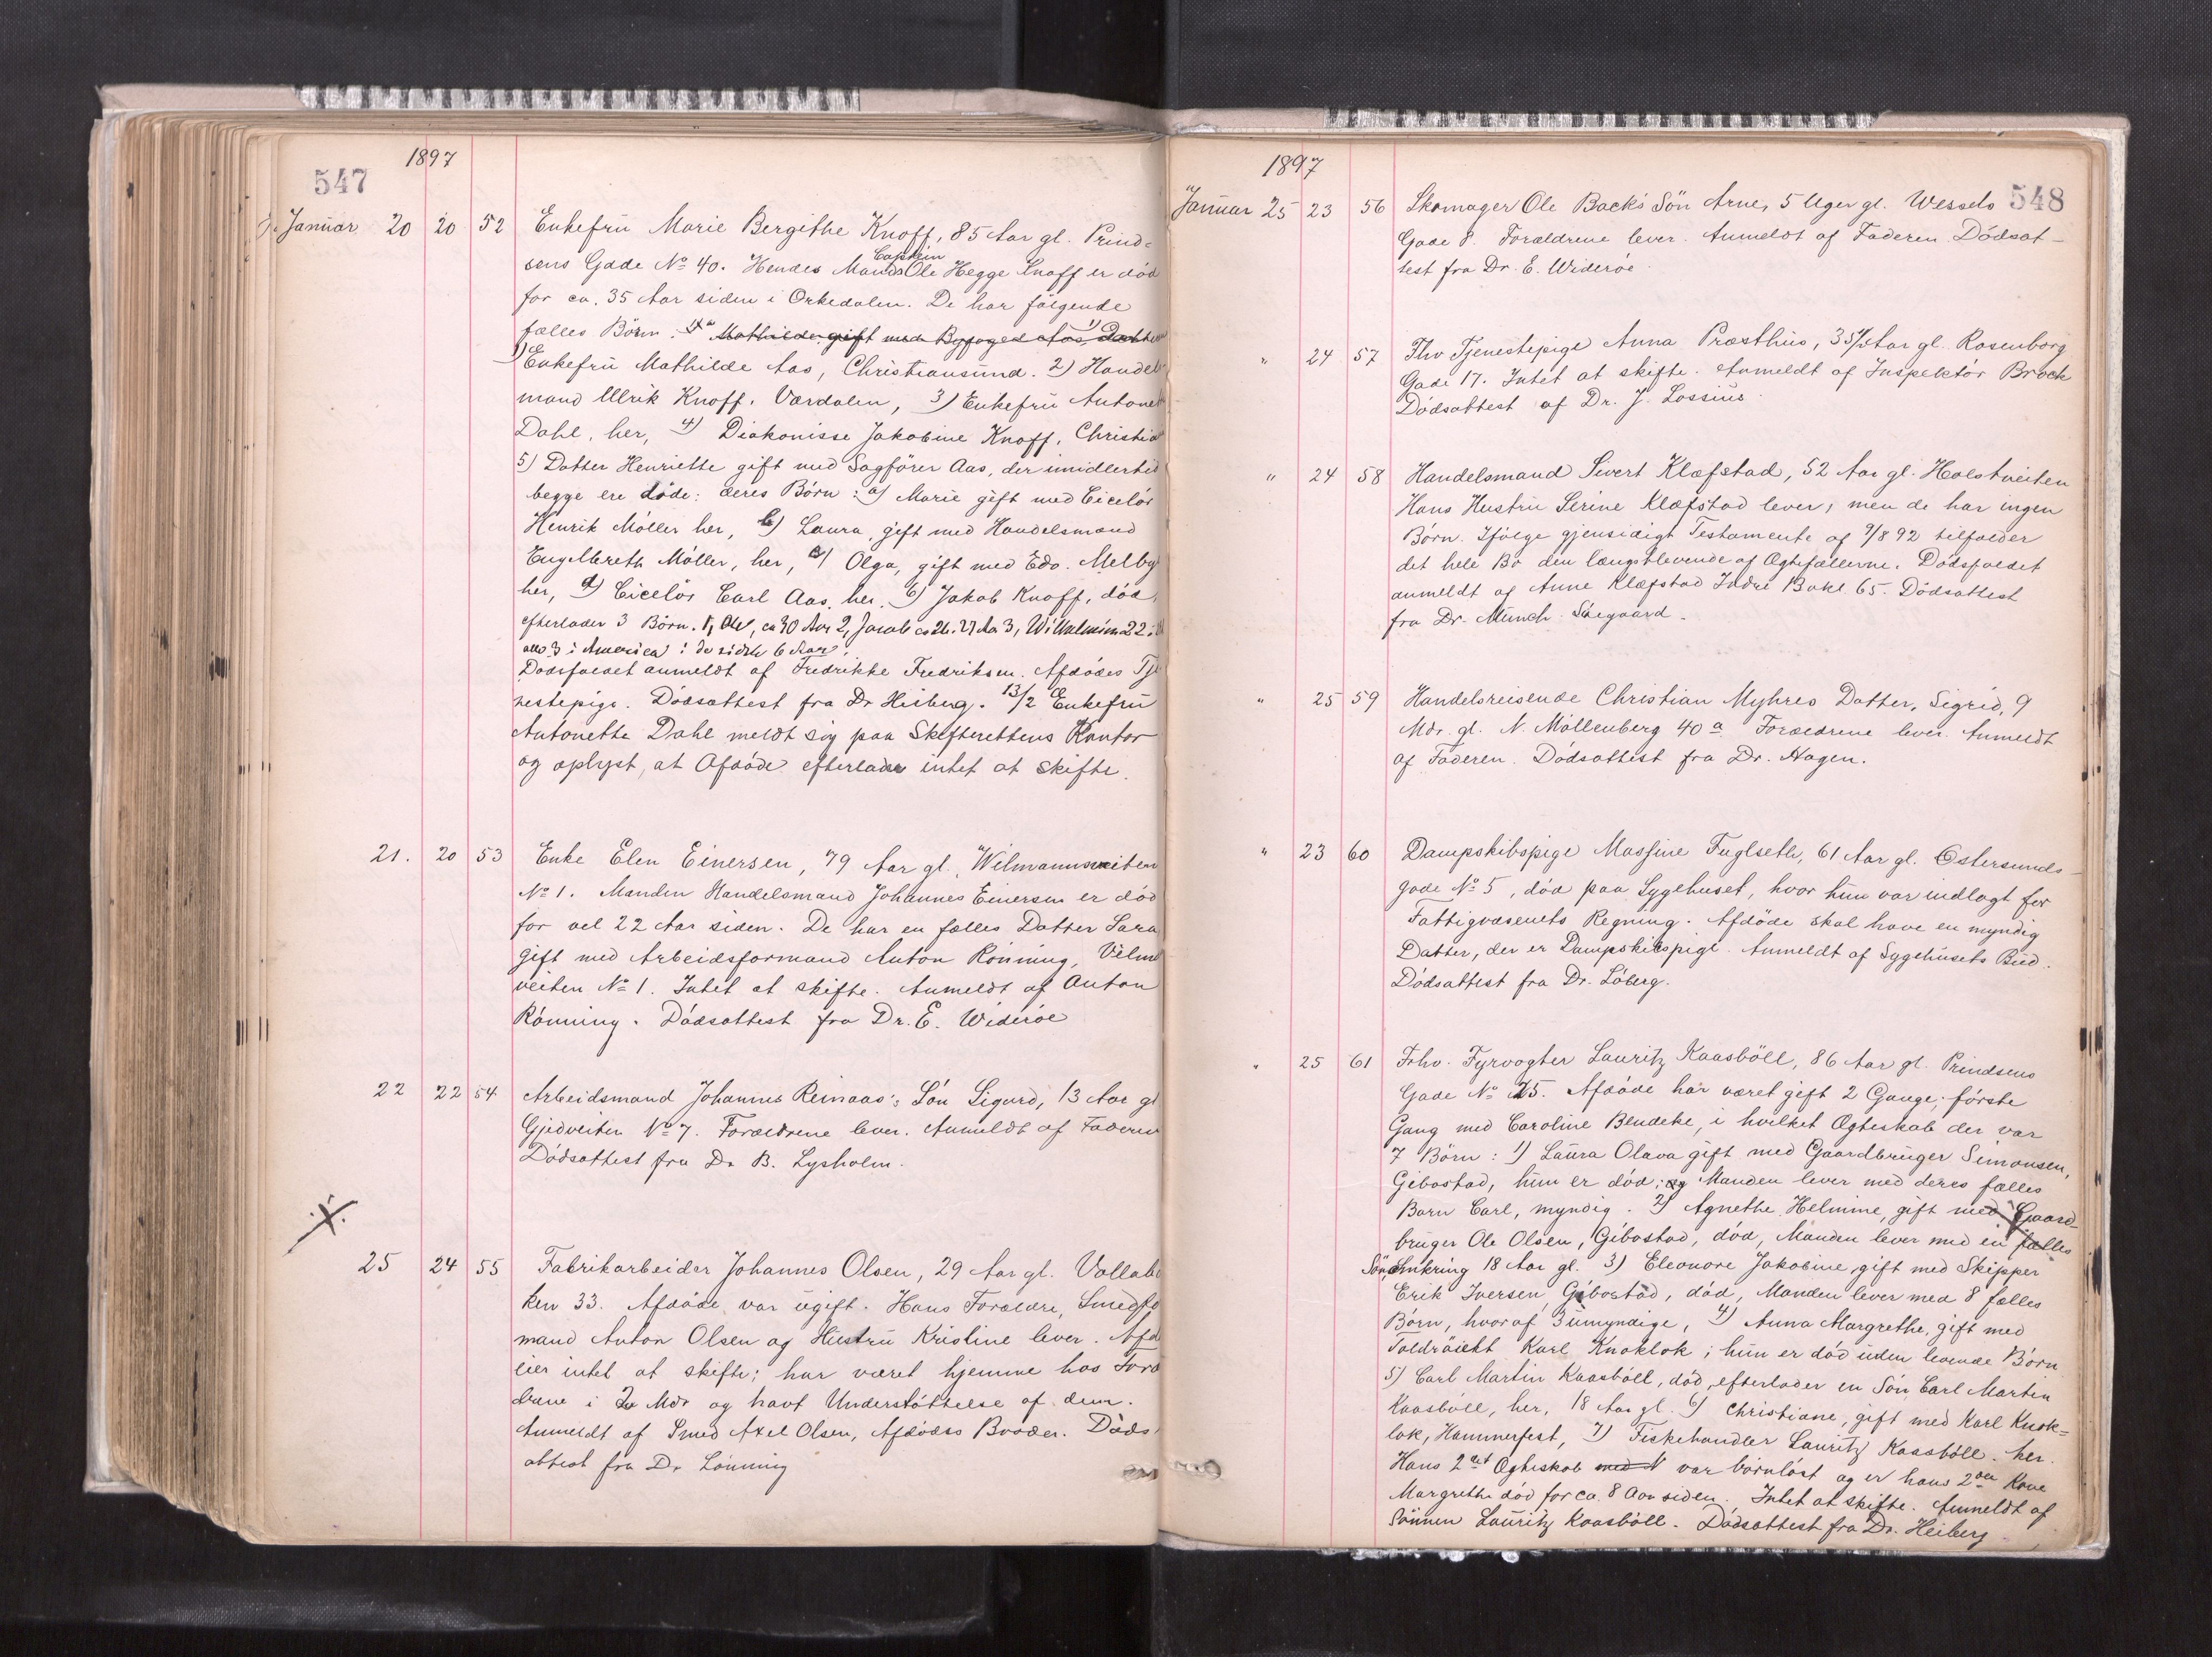 547
1897
Januar 20 20 52 Enkefru Marie Bergithe Knoff, 85 Aar gl. Prind=
sens Gade No 40. Hendes Mand Captein Ole Hegge Knoff er död
for ca. 35 Aar siden i Orkedalen. De har fölgende
fælles Börn: Mathilde gift med Byfoged Aas,
1) Enkefru Mathilde Aas, Christiansund. 2) Handels
mand Ulrik Knoff, Værdalen, 3) Enkefru Antonet
Dahl, her, 4) Diakonisse Jakobine Knoff, Christia
5) Datter Henriette gift med Sagförer Aas, der imidlertid
begge ere döde; deres Börn: a) Marie gift med Cicelör
Henrik Möller her, b) Laura, gift med Handelsmand
Engelbreth Möller, her, c) Olga, gift med Edv. Melby
her, d) Cicelör Carl Aas, her. 6) Jakob Knoff, död,
efterlader 3 Börn. 1, Ole, ca 30 Aar 2, Jacob ca 26. 27 Aar 3, Wilhelmine 22
alle 3 i America i de sidste 6 Aar.
Dödsfaldet anmeldt af Fredrikke Fredriksen. Afdödes Tje
nestepige. Dödsattest fra Dr Heiberg. 13/2 Enkefru
Antonette Dahl meldt sig paa Skifterettens Kontor
og oplyst, at Afdöde efterlader intet at skifte.
21. 20 53 Enke Elen Einersen, 79 Aar gl., Wilmannsveiten
No 1. Manden Handelsmand Johannes Einersen er död
for vel 22 Aar siden. De har en fælles Datter Sara
gift med Arbeidsformand Anton Rönning, Vilm
veiten No 1. Intet at skifte. Anmeldt af Anton
Rönning. Dödsattest fra Dr. E. Wideröe
22 22 54 Arbeidsmand Johannes Reinaas's Sön Sigurd, 13 Aar gl
Gjedveiten No 7. Forældrene lever. Anmeldt af Faderen
Dödsattest fra Dr B. Lysholm.
25 24 55 Fabrikarbeider Johannes Olsen, 29 Aar gl. Vollaba
ken 33. Afdöde var ugift. Hans Forældre, Smedfor
mand Anton Olsen og Hustru Kristine lever. Afd
eier intet at skifte; har været hjemme hos Foræ
drene i 2 Mdr og havt Understöttelse af dem.
Anmeldt af Smed Axel Olsen, Afdödes Broder. Döds
attest fra Dr Lönning
1897
548
Januar 25 23 56 Skomager Ole Backs Sön Arne, 5 Uger gl. Wessels
Gade 8. Forældrene lever. Anmeldt af Faderen. Dödsat-
test fra Dr. E. Wideröe.
" 24 57 Fhv Tjenestepige Anna Præsthus, 35 1/2 Aar gl. Rosenborg
Gade 17. Intet at skifte. Anmeldt af Inspektör Brock
Dödsattest af Dr. J. Lossius.
" 24 58 Handelsmand Sivert Klæfstad, 52 Aar gl. Holstveiten
Hans Hustru Serine Klæfstad lever, men de har ingen
Börn. Ifölge gjensidigt Testamente af 9/8 92 tilfalder
det hele Bo den længstlevende af Ægtefællerne. Dödsfaldet
anmeldt af Anne Klæfstad Indre Bakl. 65. Dödsattest
fra Dr. Munch Söegaard.
" 25 59 Handelsreisende Christian Myhres Datter, Sigrid, 9
Mdr. gl. N. Möllenberg 40 a Forældrene lever. Anmeldt
af Faderen. Dödsattest fra Dr. Hagen.
" 23 60 Dampskibspige Massine Fuglseth, 61 Aar gl. Östersunds-
gade No 5, död paa Sygehuset, hvor hun var indlagt for
Fattigvæsenets Regning. Afdöde skal have en myndig
Datter, der er Dampskibspige. Anmeldt af Sygehusets Bud.
Dödsattest fra Dr. Löberg.
" 25 61 Fhv. Fyrvogter Lauritz Kaasböll, 86 Aar gl. Prindsens
Gade No 25. Afdöde har været gift 2 Gange; förste
Gang med Caroline Blendeke, i hvilket Ægteskab der var
7 Börn: 1) Laura Olava gift med Gaardbruger Simonsen,
Gibostad, hun er död; og Manden lever med deres fælles
Barn Carl, myndig. 2) Agnethe Helmine, gift med Gaard-
bruger Ole Olsen, Gibostad, död, Manden lever med en fælles
Sön, omkring 18 Aar gl. 3) Eleonore Jakobine, gift med Skipper
Erik Iversen, Gibostad, död, Manden lever med 8 fælles
Börn, hvoraf 3 umyndige, 4) Anna Margrethe, gift med
Toldröiekt Karl Knoklok; hun er död uden levende Börn
5) Carl Martin Kaasböll, död, efterlader en Sön Carl Martin
Kaasböll, her, 18 Aar gl. 6) Christiane, gift med Karl Knok=
lok, Hammerfest, 7) Fiskehandler Lauritz Kaasböll, her.
Hans 2det Ægteskab med N var börnlöst og er hans 2den Kone
Margrethe död for ca. 8 Aar siden. Intet at skifte. Anmeldt af
Sönnen Lauritz Kaasböll. Dödsattest fra Dr. Heiberg